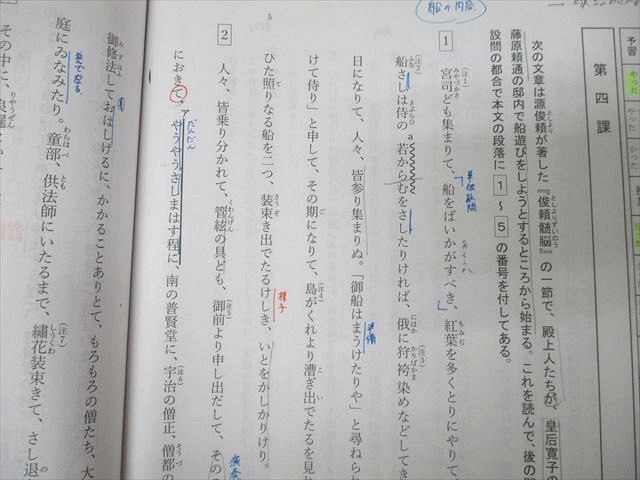 予習
やった
やった
第四課
次の文章は源俊頼が著した『俊頼髄脳』の一節で、殿上人たちが、皇后寛子の
藤原頼通の邸内で船遊びをしようとするところから始まる。これを読んで、後の問
設問の都合で本文の段落に1〜5の番号を付してある。
1
宮司ども集まりて、「船をばいかがすべき、紅葉を多くとりにやりて、
船さしは侍の a若からむをさしたりければ、俄に狩袴染めなどしてき
日になりて、人々、皆参り集まりぬ。「御船はまうけたりや」と尋ねられ
けて侍り」と申して、その期になりて、島がくれより漕ぎ出でたるを見れ
ひた照りなる船を二つ、装束き出でたるけしき、いとをかしかりけり。
様子
準備
5
2
人々、皆乗り分かれて、管絃の具ども、御前より申し出だして、そのこ
におきて、アやうやうさしまはす程に、南の普賢堂に、宇治の僧正、僧都の
だんだん
御修法しておはしけるに、かかることありとて、もろもろの僧たち、大
庭にゐなみたり。童部、供法師にいたるまで、繡花装束きて、さし退
その中に、良暹